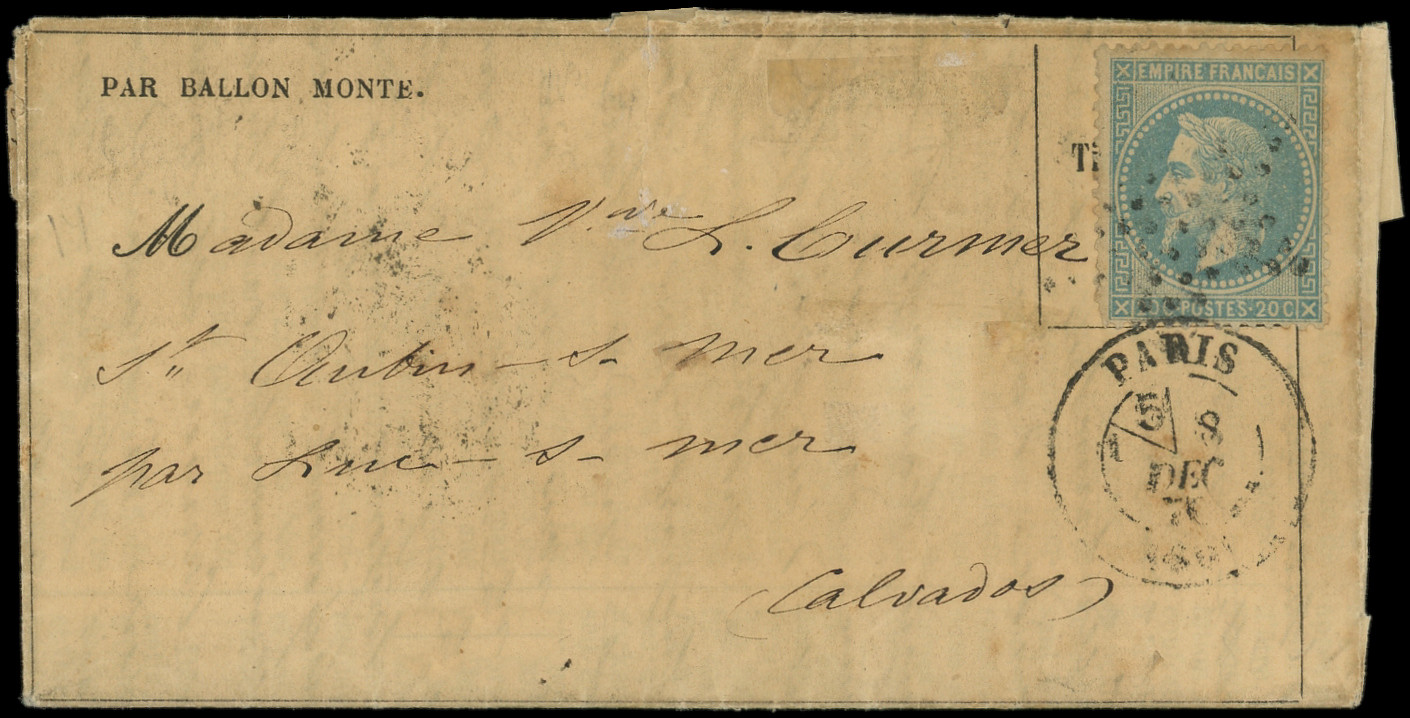 PAR BALLON MONTÉ.
EMPIRE FRANCAIS
POSTES · 20 C
Madame Vve L. Curmer
St Aubin-s-mer
par Luc-s-mer
(Calvados)
PARIS
8
DEC
(60)